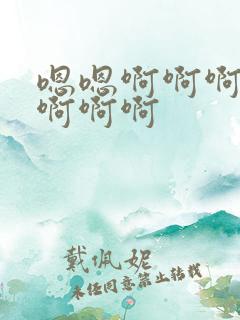 嗯嗯啊啊啊
啊啊啊
戴佩妮
未经同意禁止转载